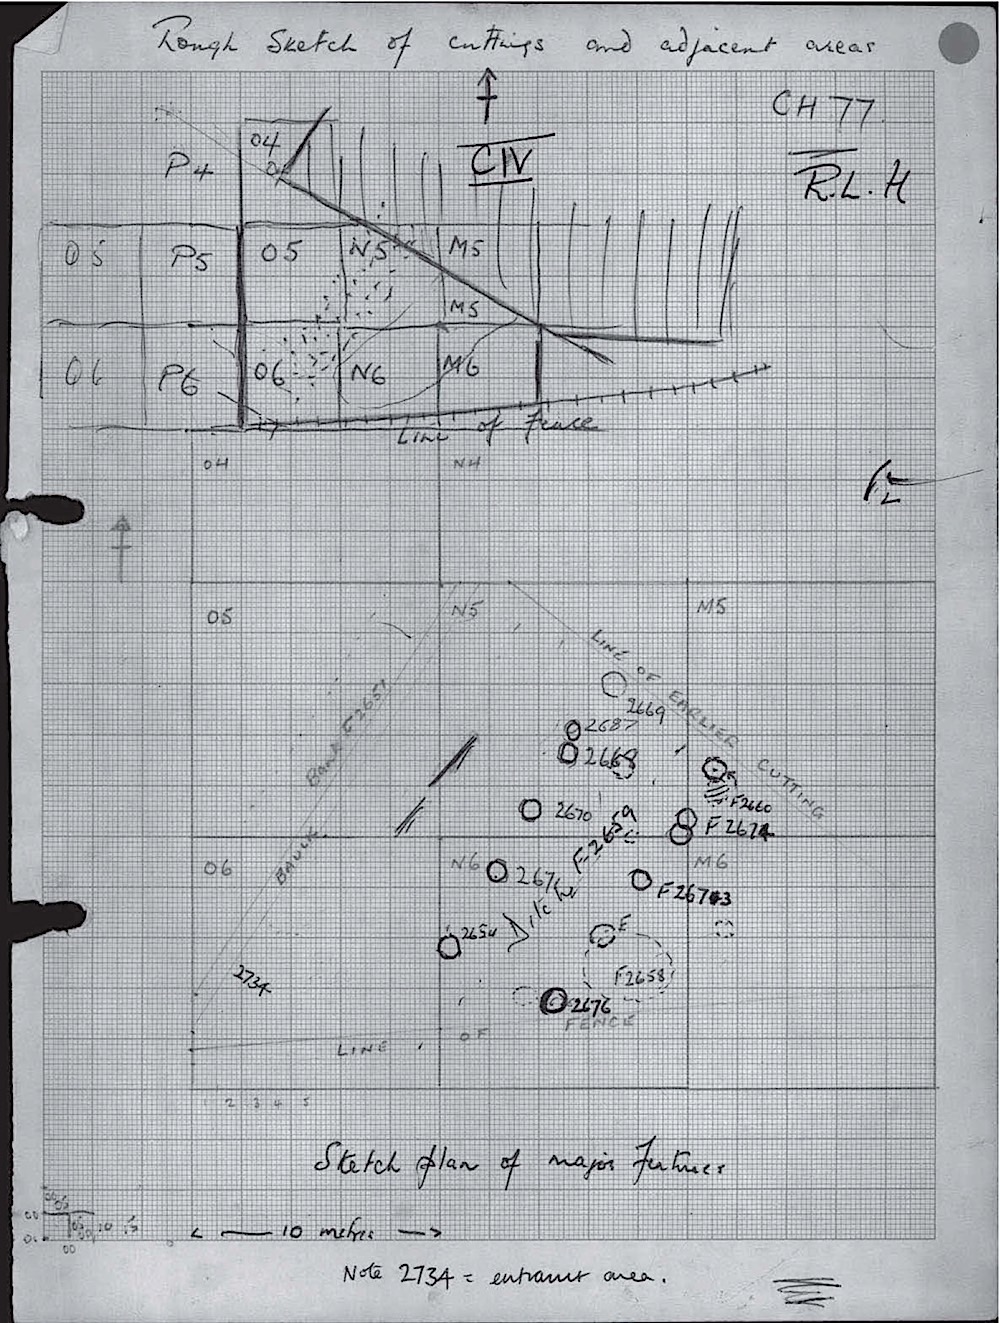 Rough Sketch of cuttings and adjacent areas
CH 77.
R.L.H
CIV
P4 04
05 P5 05 N5 M5
M5
06 P6 06 N6 M6
Line of Fence
04 N4
05 N5 M5
LINE OF EARLIER CUTTING
2669
2687
2668
Bank F2651
F2660
2670
F 2674
BAULK
06 N6 M6
Ditch
2654
E
F2658
2734
2676
LINE OF FENCE
2 3 4 5
Sketch plan of major Futures
10 metres
Note 2734 = entrance area.